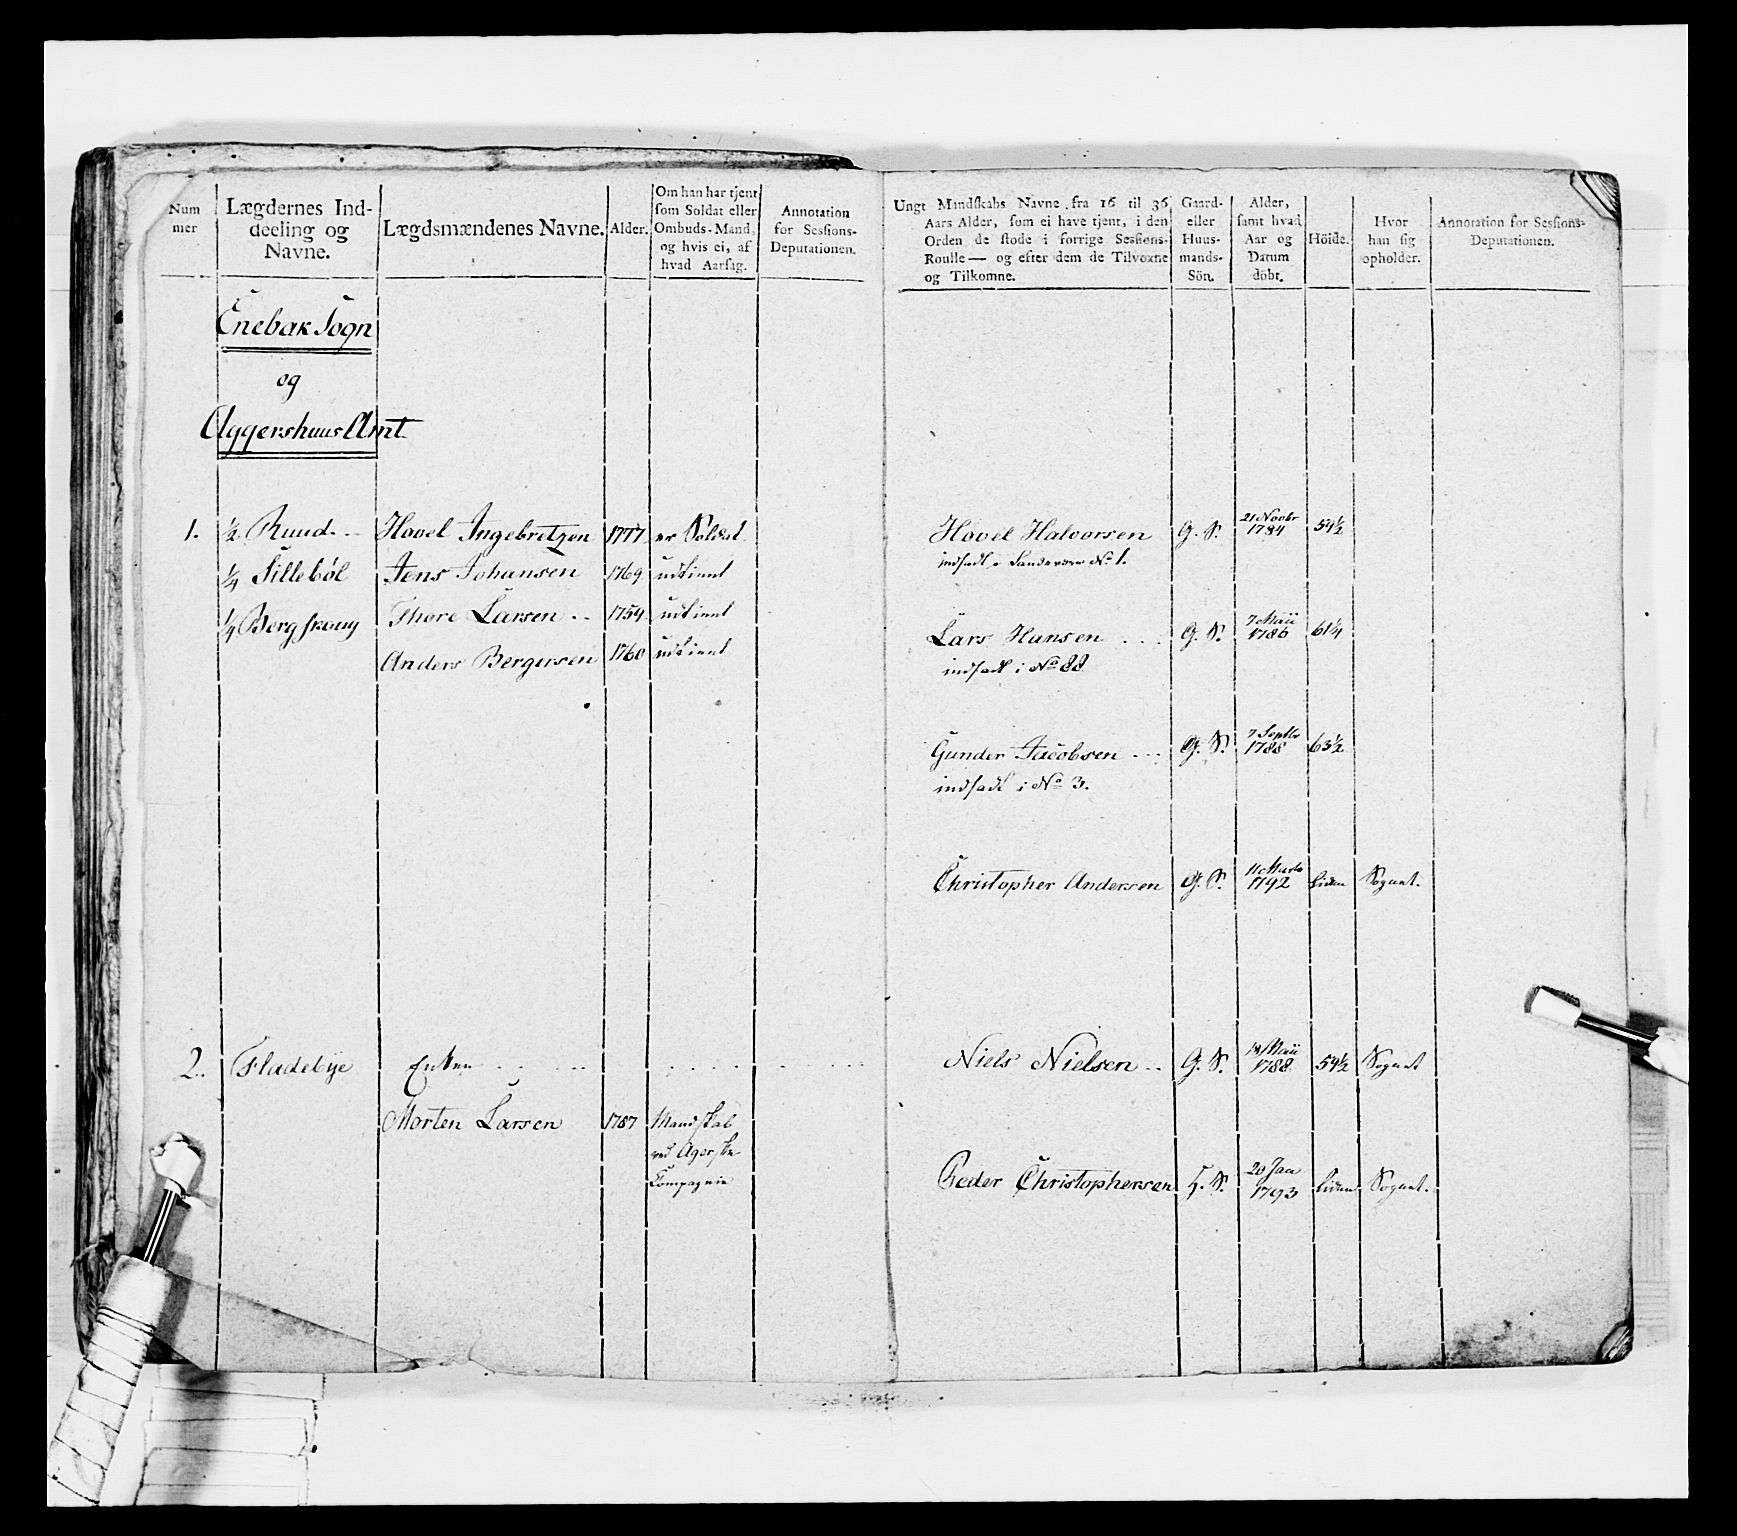 Num
mer
Lægdernes Ind-
deeling og
Navne.
Lægdsmændenes Navne.
Alder.
Om han har tjent
som Soldat eller
Ombuds-Mand,
og hvis ei, af
hvad Aarsag.
Annotation
for Sessions-
Deputationen.
Ungt Mandskabs Navne fra 16 til 36
Aars Alder, som ei have tjent, i den
Orden de stode i forrige Sessions-
Roulle — og efter dem de Tilvoxne
og Tilkomne.
Gaard-
eller
Huus-
mands-
Sön.
Alder,
samt hvad
Aar og
Datum
döbt.
Höide.
Hvor
han sig
opholder.
Annotation for Sessions-
Deputationen.
Enebak Sogn
og
Aggershuus Amt.
1. ½ Ruud. Hovel Ingebretzen 1777 er Soldat
¼ Sillebøl Jens Johansen 1769 udtient
¼ Berg Thore Larsen .. 1759 udtient
Anders Bergersen 1760 udtient
Hovel Halvorsen G. S. 21 Novbr 1784 59½
indsadt No 1.
Lars Hansen ... G. S. 7 Maii 1786 61¼
indsadt i No 88
Gunder Jacobsen ... G. S. 7 Septbr 1788 63½
indsadt i No 3.
Christopher Andersen G. S. 11 Marts 1792 Liden Sognet.
2. Fladebye Enken
Morten Larsen 1787 Mandskab
ved Agerske
Compagnie
Niels Nielsen .. G. S. 18 Maii 1788 59½ Sognet
Peder Christophersen H. S. 20 Jan 1793 Liden Sognet.